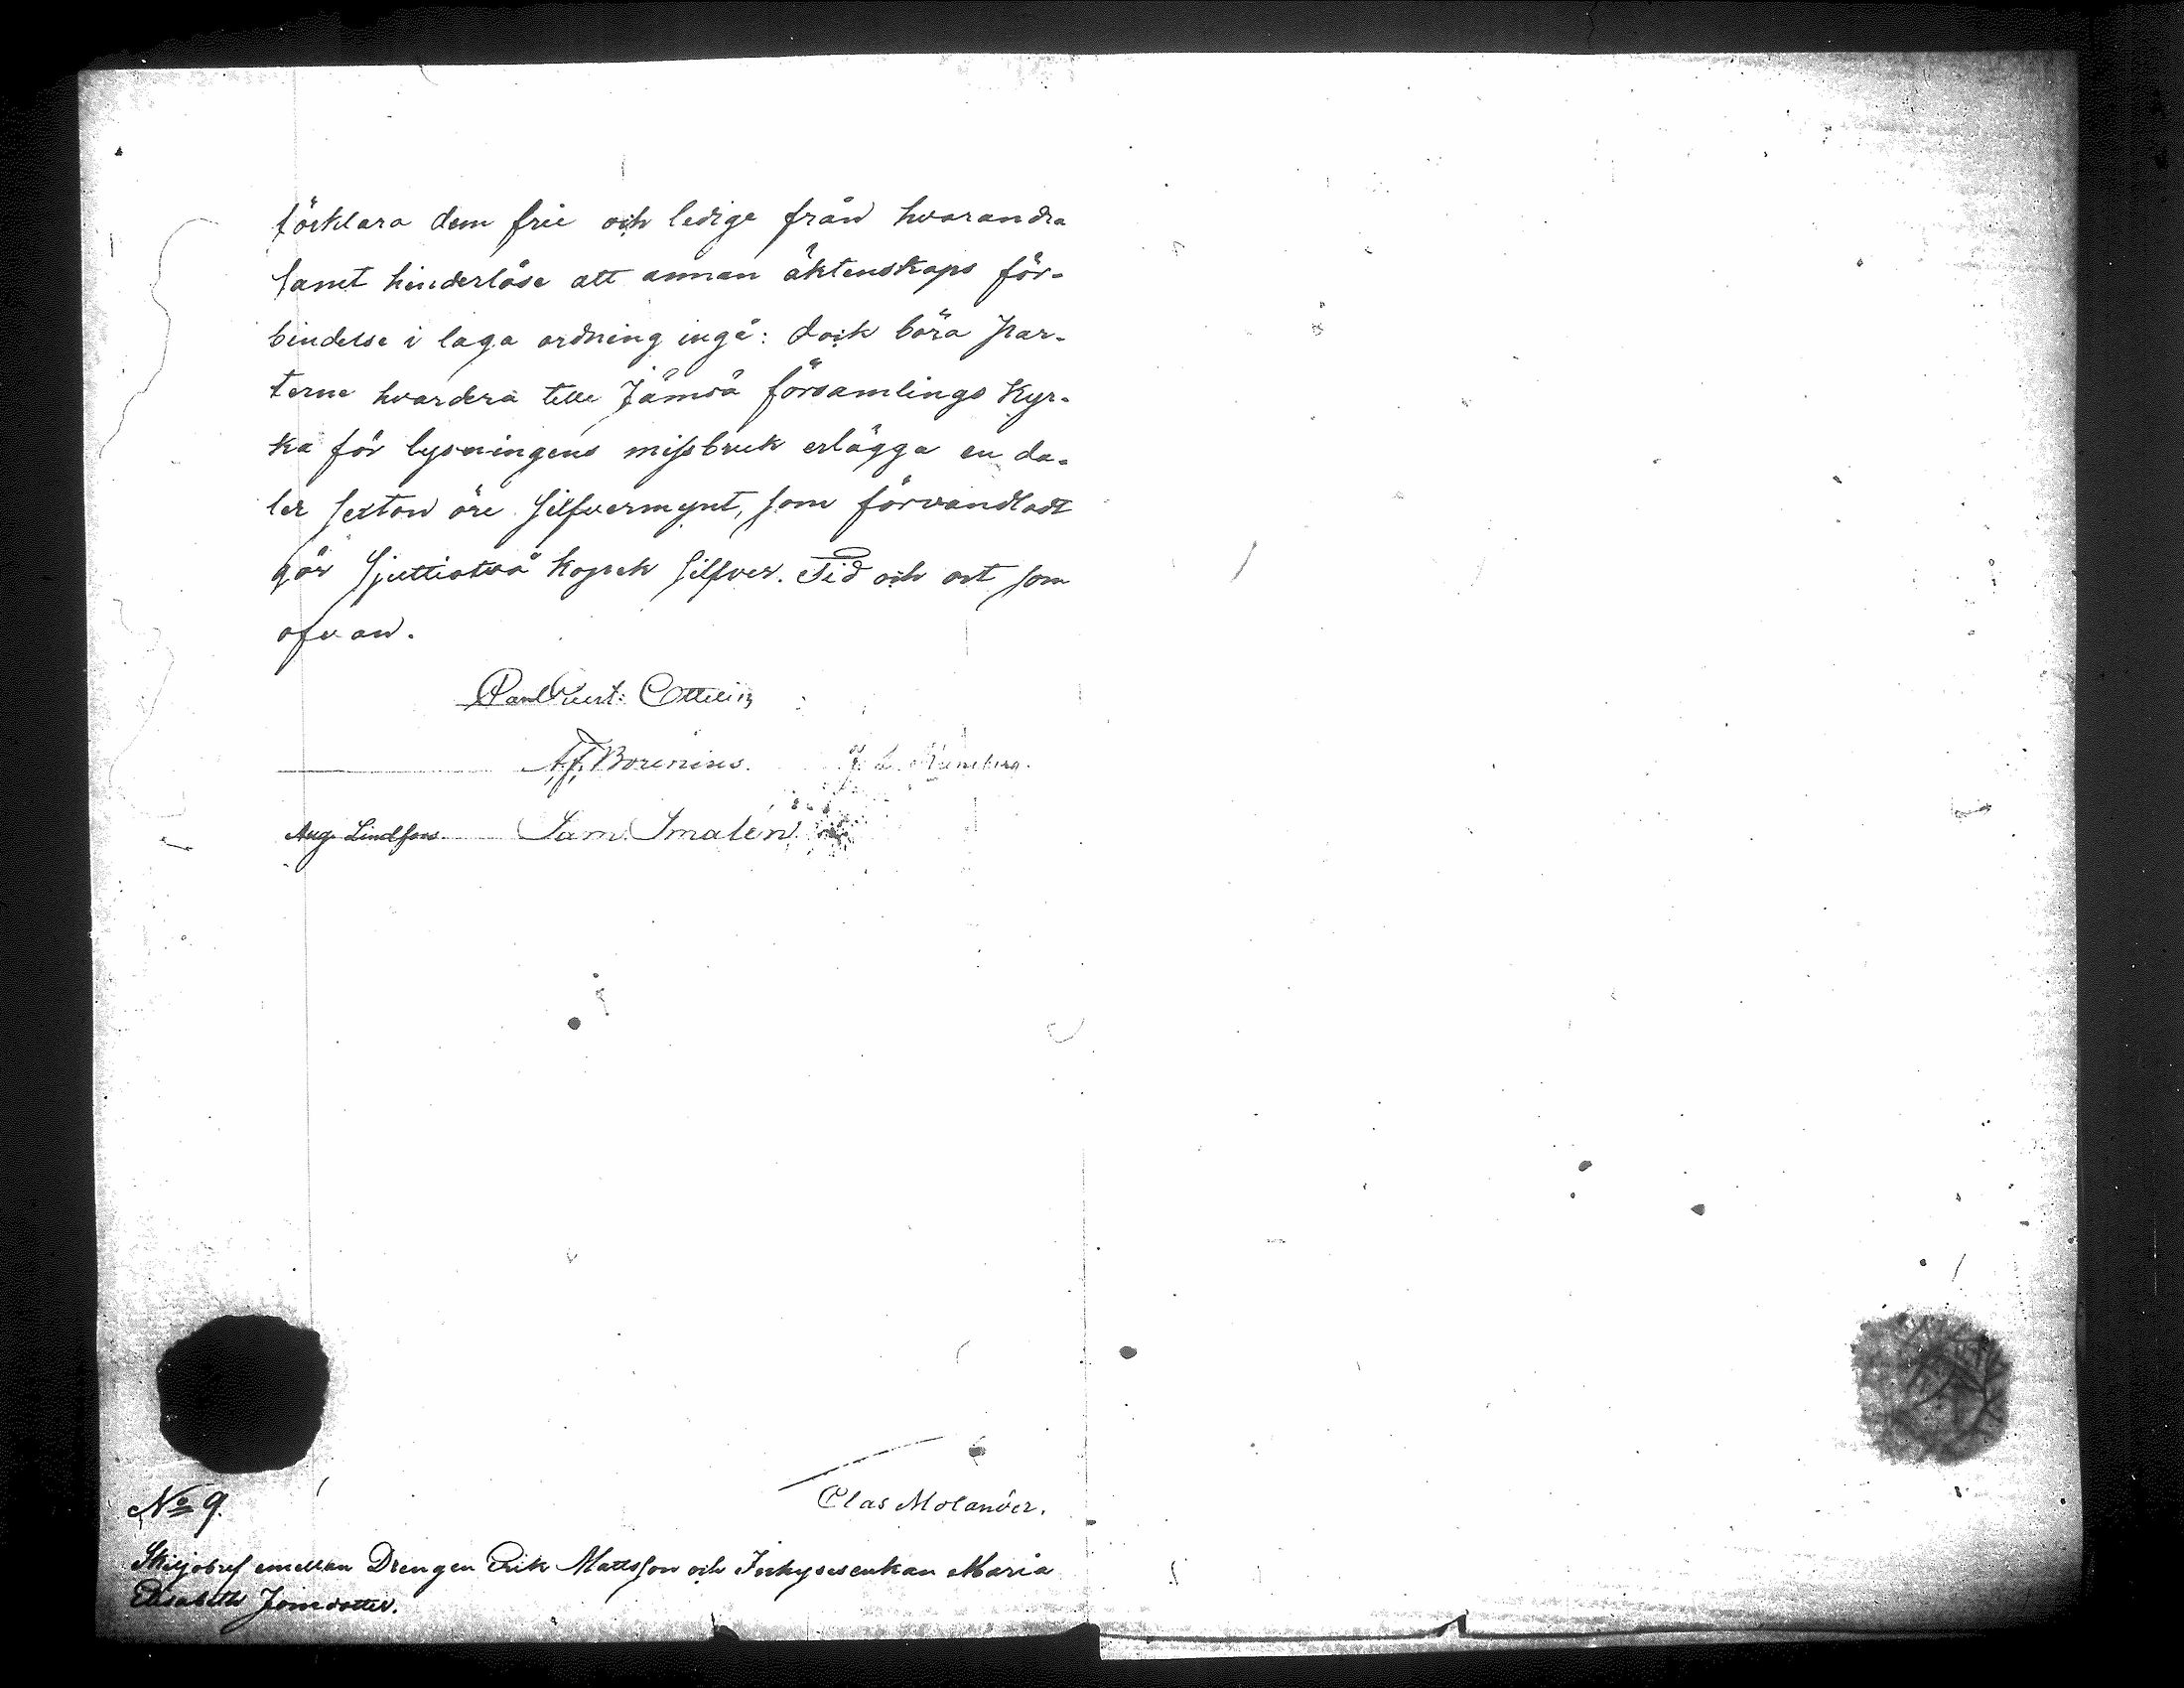 förklara dem frie och ledige från hvarandra
samt hinderlöse att annan äktenskaps för-
bindelse i laga ordning ingå: dock böra par-
terne hvardera till Jämsä församlings Kyr-
ka för lysningens missbruk erlägga en da-
ler sexton öre silfvermynt, som förvandladt
gör sjuttiotvå kopek silfver. Tid och ort som
ofvan.
Ottelin
Borenius. J. L. Runeberg.
Aug. Lindfors. Sam. Smalén.
Clas Molander.
No 9.
Skiljobref emellan Drengen Erik Mattsson och Maria
Elisabeth